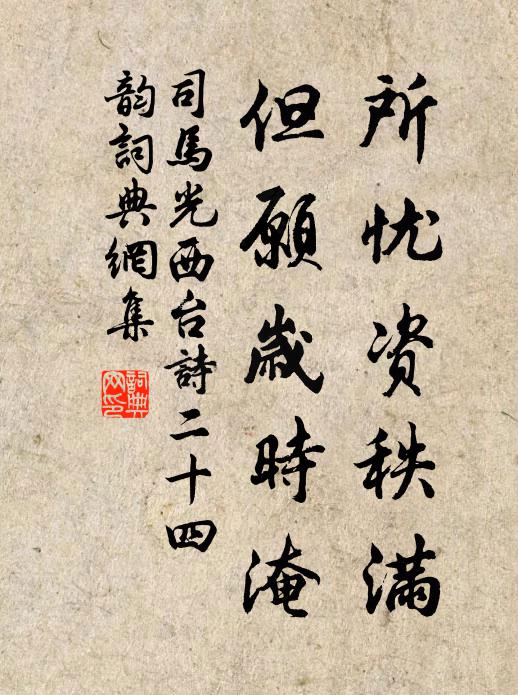 所忧资秩滿
但願歲時淹
司馬光西台詩二十四
韵詞典網集
詞典
网印